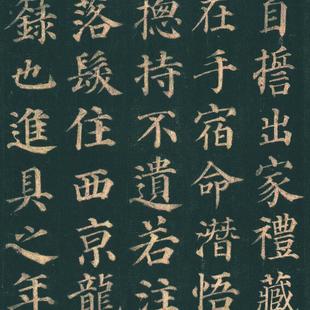 自誓出家禮藏
在手宿命潛悟
揔持不遺若注
落髮住西京龍
錄也進具之年